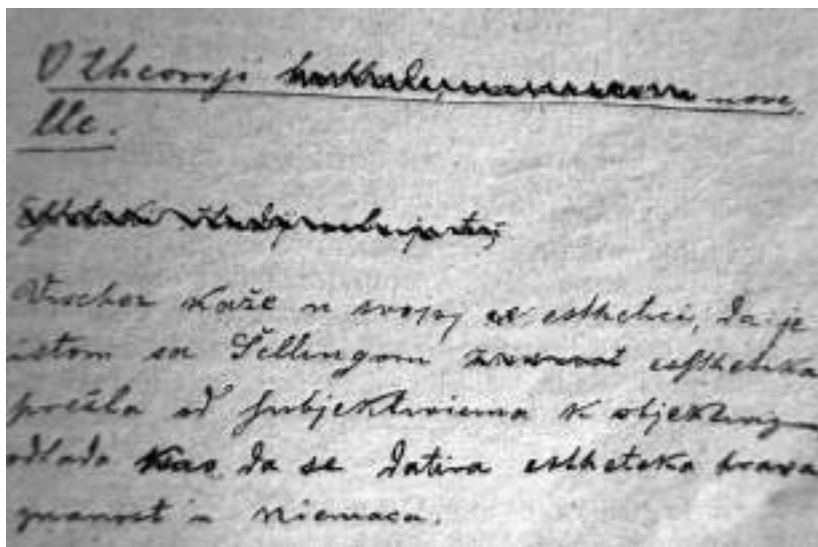 O theoriji nove
lle.
kaže u svojoj esthetici, da je
istom sa Šellingom esthetika
prešla od subjektivizma k objektivizmu
odlada kao da se datira esthetika prava
znanost u Niemaca.